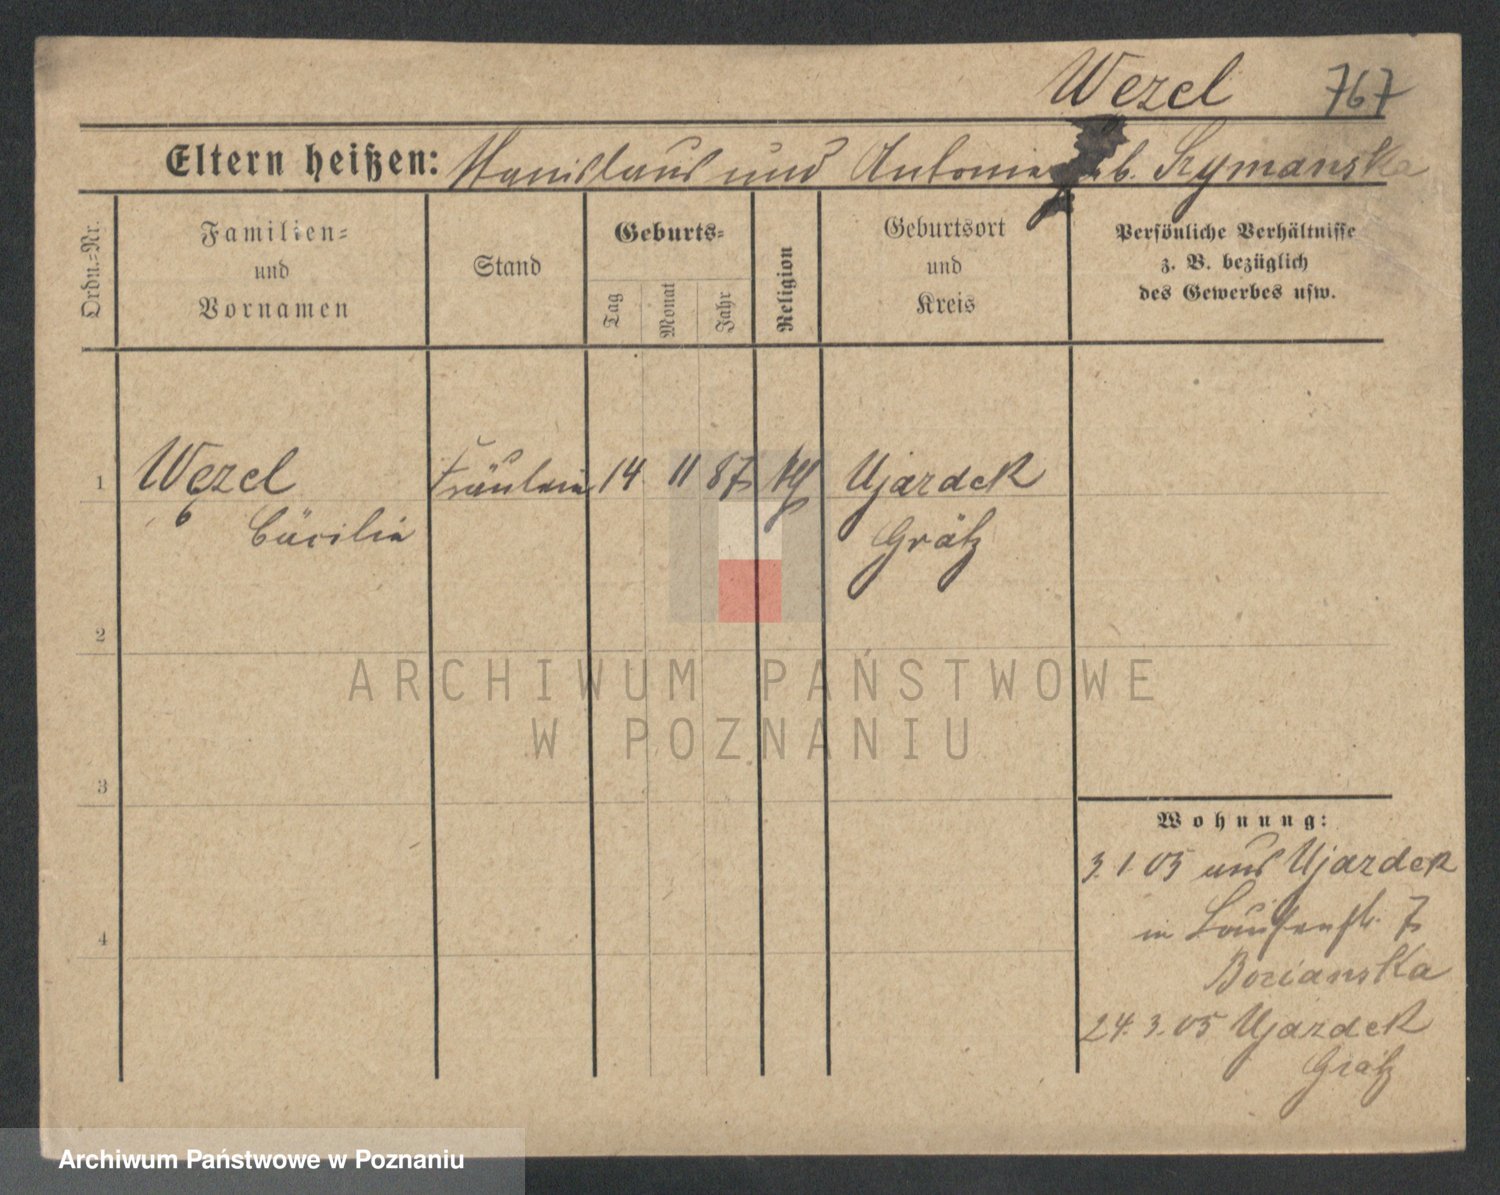 Wezel 767
Eltern heißen: Stanislaus und Antonie geb. Szymanska
Ordn.-Nr.
Familien-
und
Vornamen
Stand
Geburts-
Tag
Monat
Jahr
Religion
Geburtsort
und
Kreis
Persönliche Verhältnisse
z. B. bezüglich
des Gewerbes usw.
1 Węzel Fräulein 14 11 87 kth Ujazdek
Cäcilie Grätz
2
ARCHIWUM PAŃSTWOWE
W POZNANIU
3
Wohnung:
3.1.05 aus Ujazdek
in 7
4
24.3.05 Ujazdek
Grätz
Archiwum Państwowe w Poznaniu